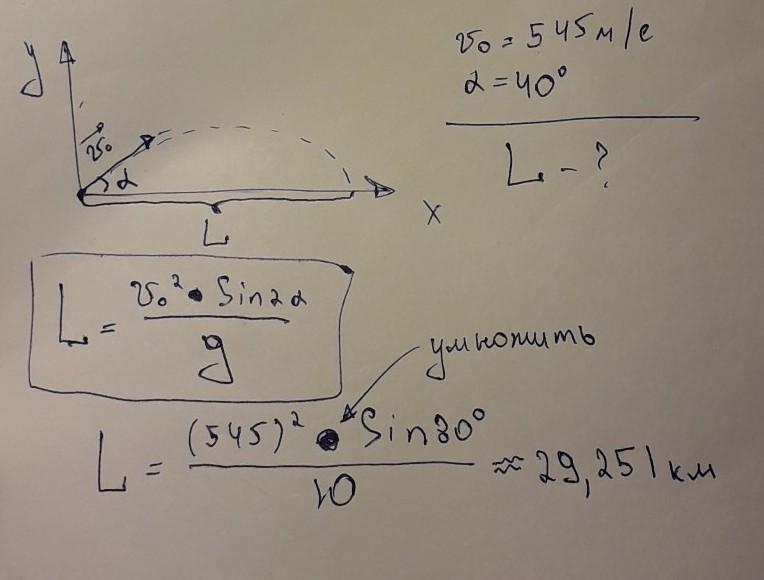 y
v₀ = 545 м/с
α = 40°
L - ?
v₀
α
x
L
L = v₀² • Sin2α / g
умножить
L = (545)² • Sin80° / 10 ≈ 29,251 км